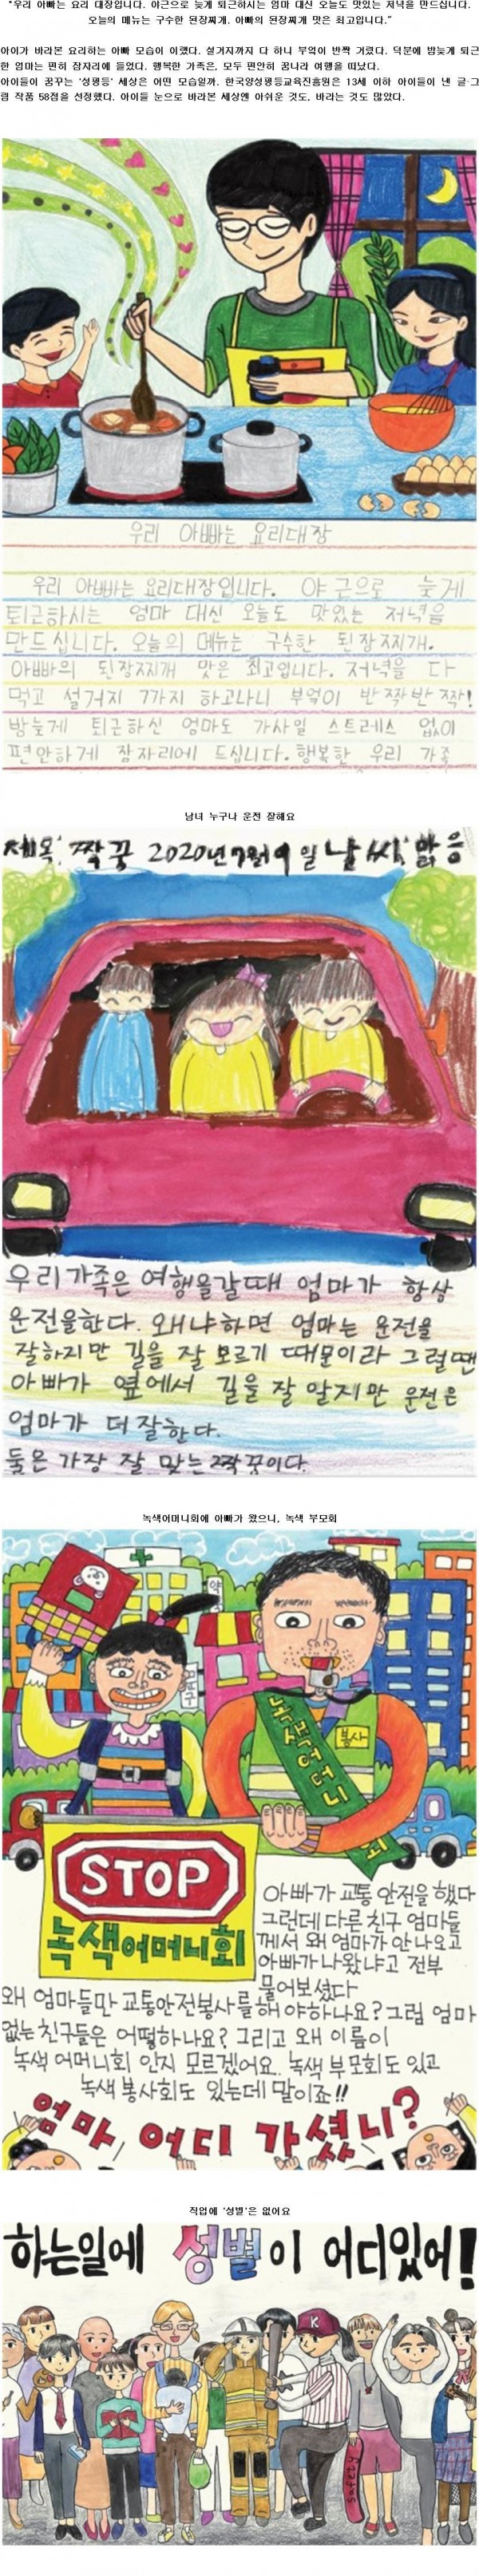 "우리 아빠는 요리 대장입니다. 야근으로 늦게 퇴근하시는 엄마 대신 오늘도 맛있는 저녁을 만드십니다.
오늘의 메뉴는 구수한 된장찌개. 아빠의 된장찌개 맛은 최고입니다."
아이가 바라본 요리하는 아빠 모습이 이랬다. 설거지까지 다 하니 부엌이 반짝 거렸다. 덕분에 밤늦게 퇴근
한 엄마는 편히 잠자리에 들었다. 행복한 가족은, 모두 편안히 꿈나라 여행을 떠났다.
아이들이 꿈꾸는 '성평등' 세상은 어떤 모습일까. 한국양성평등교육진흥원은 13세 이하 아이들이 낸 글·그
림 작품 58점을 선정했다. 아이들 눈으로 바라본 세상엔 아쉬운 것도, 바라는 것도 많았다.
우리 아빠는 요리대장
우리 아빠는 요리대장입니다. 야근으로 늦게
퇴근하시는 엄마 대신 오늘도 맛있는 저녁을
만드십니다. 오늘의 메뉴는 구수한 된장찌개.
아빠의 된장찌개 맛은 최고입니다. 저녁을 다
먹고 설거지 까지 하고나니 부엌이 반짝반짝!
밤늦게 퇴근하신 엄마도 가사일 스트레스 없이
편안하게 잠자리에 드십니다. 행복한 우리 가족
남녀 누구나 운전 잘해요
제목: 짝꿍 2020년 7월 9일 날씨 맑음
우리가족은 여행을갈때 엄마가 항상
운전을한다. 왜냐하면 엄마는 운전을
잘하지만 길을 잘 모르기 때문이라 그럴땐
아빠가 옆에서 길을 잘 알지만 운전은
엄마가 더 잘한다.
둘은 가장 잘 맞는 짝꿍이다.
녹색어머니회에 아빠가 왔으니, 녹색 부모회
약
봉사
녹색어머니회
STOP
녹색어머니회
아빠가 교통 안전을 했다
그런데 다른 친구 엄마들
께서 왜 엄마가 안나오고
아빠가 나왔냐고 전부
물어보셨다
왜 엄마들만 교통안전봉사를 해야하나요? 그럼 엄마
없는 친구들은 어떻하나요? 그리고 왜 이름이
녹색 어머니회 인지 모르겠어요. 녹색 부모회도 있고
녹색 봉사회도 있는데 말이죠!!
엄마 어디 가셨니?
직업에 '성별'은 없어요
하는일에 성별이 어디있어!
K
safety